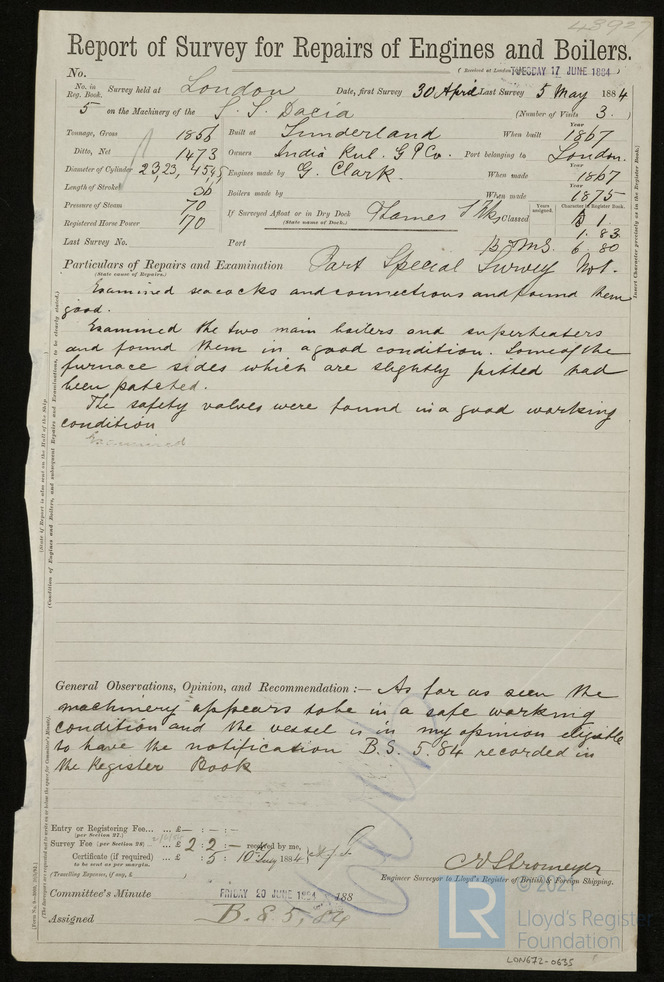 43927
Report of Survey for Repairs of Engines and Boilers.
No. (Received at London TUESDAY 17 JUNE 1884)
No. in Reg. Book. Survey held at London Date, first Survey 30 April Last Survey 5 May 1884
5 on the Machinery of the S. S. Dacia (Number of Visits 3.)
Tonnage, Gross 1856 Built at Sunderland When built Year 1867
Ditto, Net 1473 Owners India Rub. G P Co. Port belonging to London.
Diameter of Cylinder 23, 23, 45, 45 Engines made by G. Clark. When made Year 1867
Length of Stroke 36 Boilers made by When made Year 1875
Pressure of Steam 70 If Surveyed Afloat or in Dry Dock Thames Classed Years assigned. Character in Register Book. A 1
Registered Horse Power 170 (State name of Dock.) 1.83
Last Survey No. Port B&MS. 6.80
Particulars of Repairs and Examination Part Special Survey No 1.
(State cause of Repairs.)
Examined seacocks and connections and found them
good.
Examined the two main boilers and superheaters
and found them in a good condition. Some of the
furnace sides which are slightly pitted had
been patched.
The safety valves were found in a good working
condition
Examined
General Observations, Opinion, and Recommendation :— As far as seen the
machinery appears to be in a safe working
condition and the vessel is in my opinion eligible
to have the notification B.S. 5.84 recorded in
the Register Book
Entry or Registering Fee... ... £ — : — : —
(per Section 27.)
Survey Fee (per Section 28) ... £ 2 : 2 : — received by me,
Certificate (if required) ... £ : 5 : 10 July 1884
to be sent as per margin.
(Travelling Expenses, if any, £ )
C E Stromeyer
Engineer Surveyor to Lloyd's Register of British & Foreign Shipping.
Committee's Minute FRIDAY 20 JUNE 1884 188
Assigned B. S 5, 84
LR © 2021
Lloyd's Register
Foundation
LON672-0635